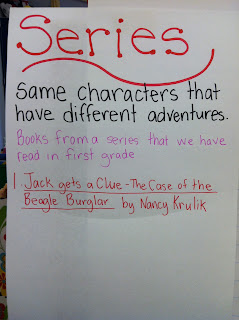 Series
Same characters that
have different adventures.
Books from a series that we have
read in first grade
1 Jack gets a Clue - The Case of the
Beagle Burglar by Nancy Krulik